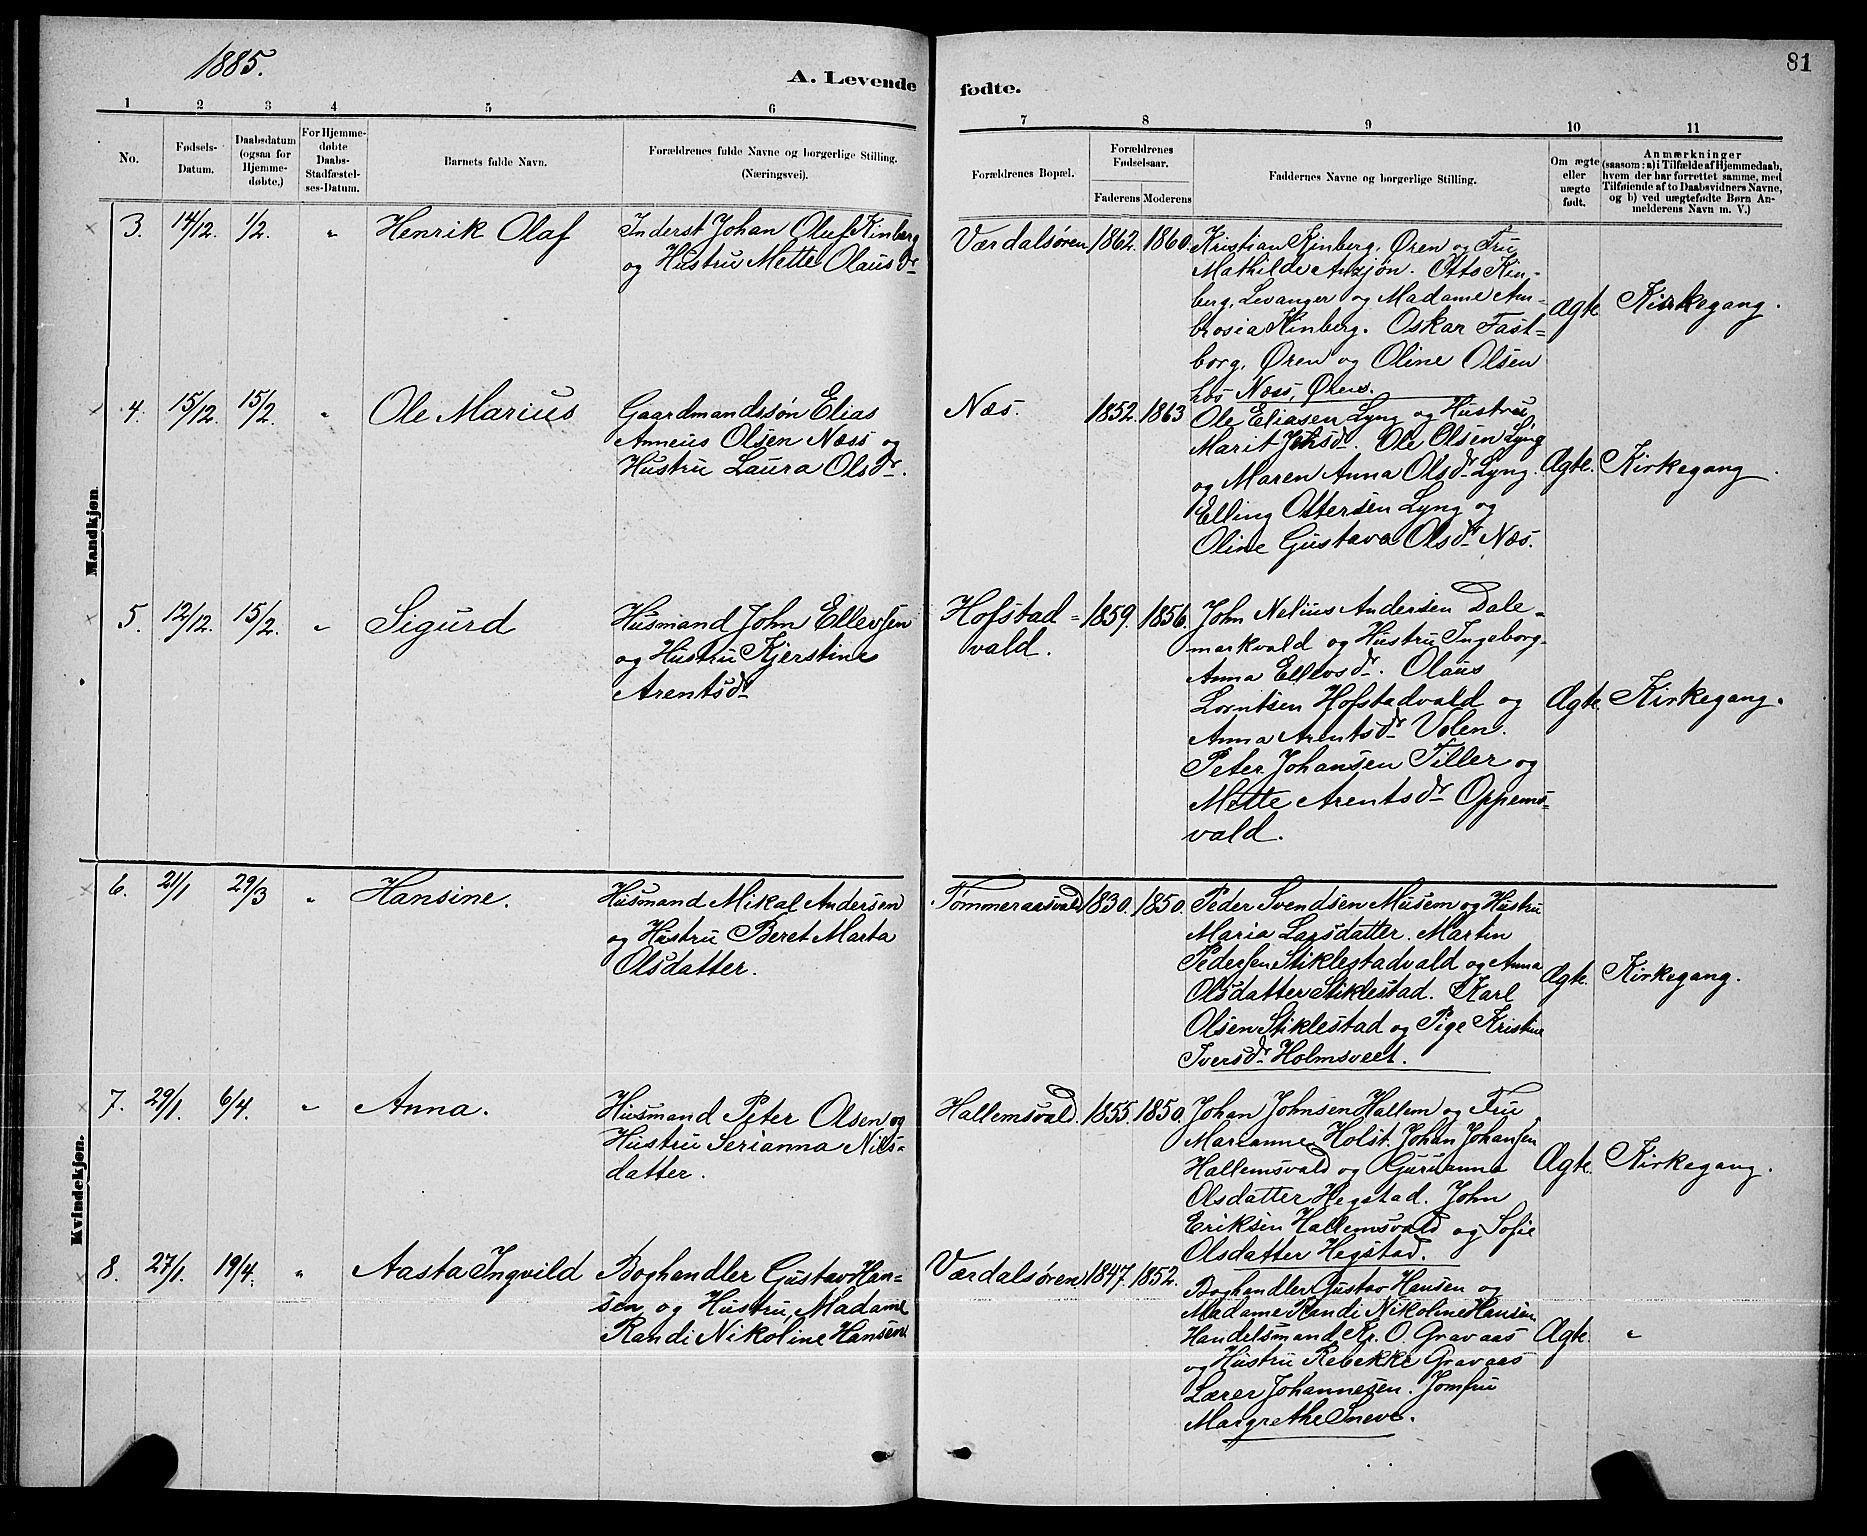 1885.
81
A. Levende fødte.
1 2 3 4 5 6 7 8 9 10 11
No.
Fødsels-
Datum.
Daabsdatum
(ogsaa for
Hjemme-
døbte.)
For Hjemme-
døbte
Daabs-
Stadfæstel-
ses-Datum.
Barnets fulde Navn.
Forældrenes fulde Navne og borgerlige Stilling.
(Næringsvei).
Forældrenes Bopæl.
Forældrenes
Fødselsaar.
Faderens Moderens
Faddernes Navne og borgerlige Stilling.
Om ægte
eller
uægte
født.
Anmærkninger
(saasom: a) i Tilfælde af Hjemmedaab,
hvem der har forrettet samme, med
Tilføiende af to Daabsvidners Navne,
og b) ved uægtefødte Børn An-
melderens Navn m. V.)
Mandkjøn.
3. 14/12. 1/2. " Henrik Olaf
Inderst Johan Oluf Kinberg
og Hustru Mette Olausdr
Værdalsøren 1862. 1860.
Kristian Kinberg, Øren og Fru
Mathilde Arzjøn. Otto Kin-
berg, Levanger og Madame Am-
brosia Kinberg. Oskar Fast-
borg, Øren og Oline Olsen
hos Næss, Øren.
Ægte Kirkegang.
4. 15/12. 15/2. " Ole Marius
Gaardmandssøn Elias
Anneus Olsen Næss og
Hustru Laura Olsdr.
Næs. 1852. 1863
Ole Eliasen Lyng og Hustru
Marit Jensd. Ole Olsen Lyng
og Maren Anna Olsdr Lyng.
Elling Ottersen Lyng og
Oline Gustava Olsdr Næs.
Ægte. Kirkegang.
5. 12/12. 15/2. " Sigurd
Husmand John Ellevsen
og Hustru Kjerstine
Arentsdr
Hofstad=
vald. 1859. 1856.
John Nelius Andersen Dale-
markvald og Hustru Ingeborg-
Anna Ellevsdr. Olaus
Lorntsen Hofstadvald og
Anna Arentsdr Volen.
Peter Johansen Tiller og
Mette Arentsdr Oppems-
vald.
Ægte. Kirkegang.
Kvindekjøn.
6. 21/1 29/3 " Hansine.
Husmand Mikal Andersen
og Hustru Beret Marta
Olsdatter.
Tømmeraasvald 1830. 1850.
Peder Svendsen Musem og Hustru
Maria Larsdatter. Martin
Pedersen Stiklestadvald og Anna
Olsdatter Stiklestad. Karl
Olsen Stiklestad og Pige Kristine
Iversdr Holmsveet.
Ægte. Kirkegang.
7. 29/1. 6/4. " Anna.
Husmand Peter Olsen og
Hustru Serianna Nils-
datter.
Hallemsvald. 1855. 1850.
Johan Johnsen Hallem og Fru
Marianne Holst. Johan Johansen
Hallemsvald og Gurianna
Olsdatter Hegstad. John
Eriksen Hallemsvald og Sofie
Olsdatter Hegstad.
Ægte. Kirkegang.
8. 27/1. 19/4. " Aasta Ingvild
Boghandler Gustav Han-
sen og Hustru, Madame
Randi Nikoline Hansen
Værdalsøren 1847. 1852.
Boghandler Gustav Hansen og
Madame Randi Nikoline Hansen
Handelsmand Kr. O. Gravaas
og Hustru Rebekke Gravaas
Lærer Johannesen. Jomfru
Margrethe Sneve.
Ægte. "